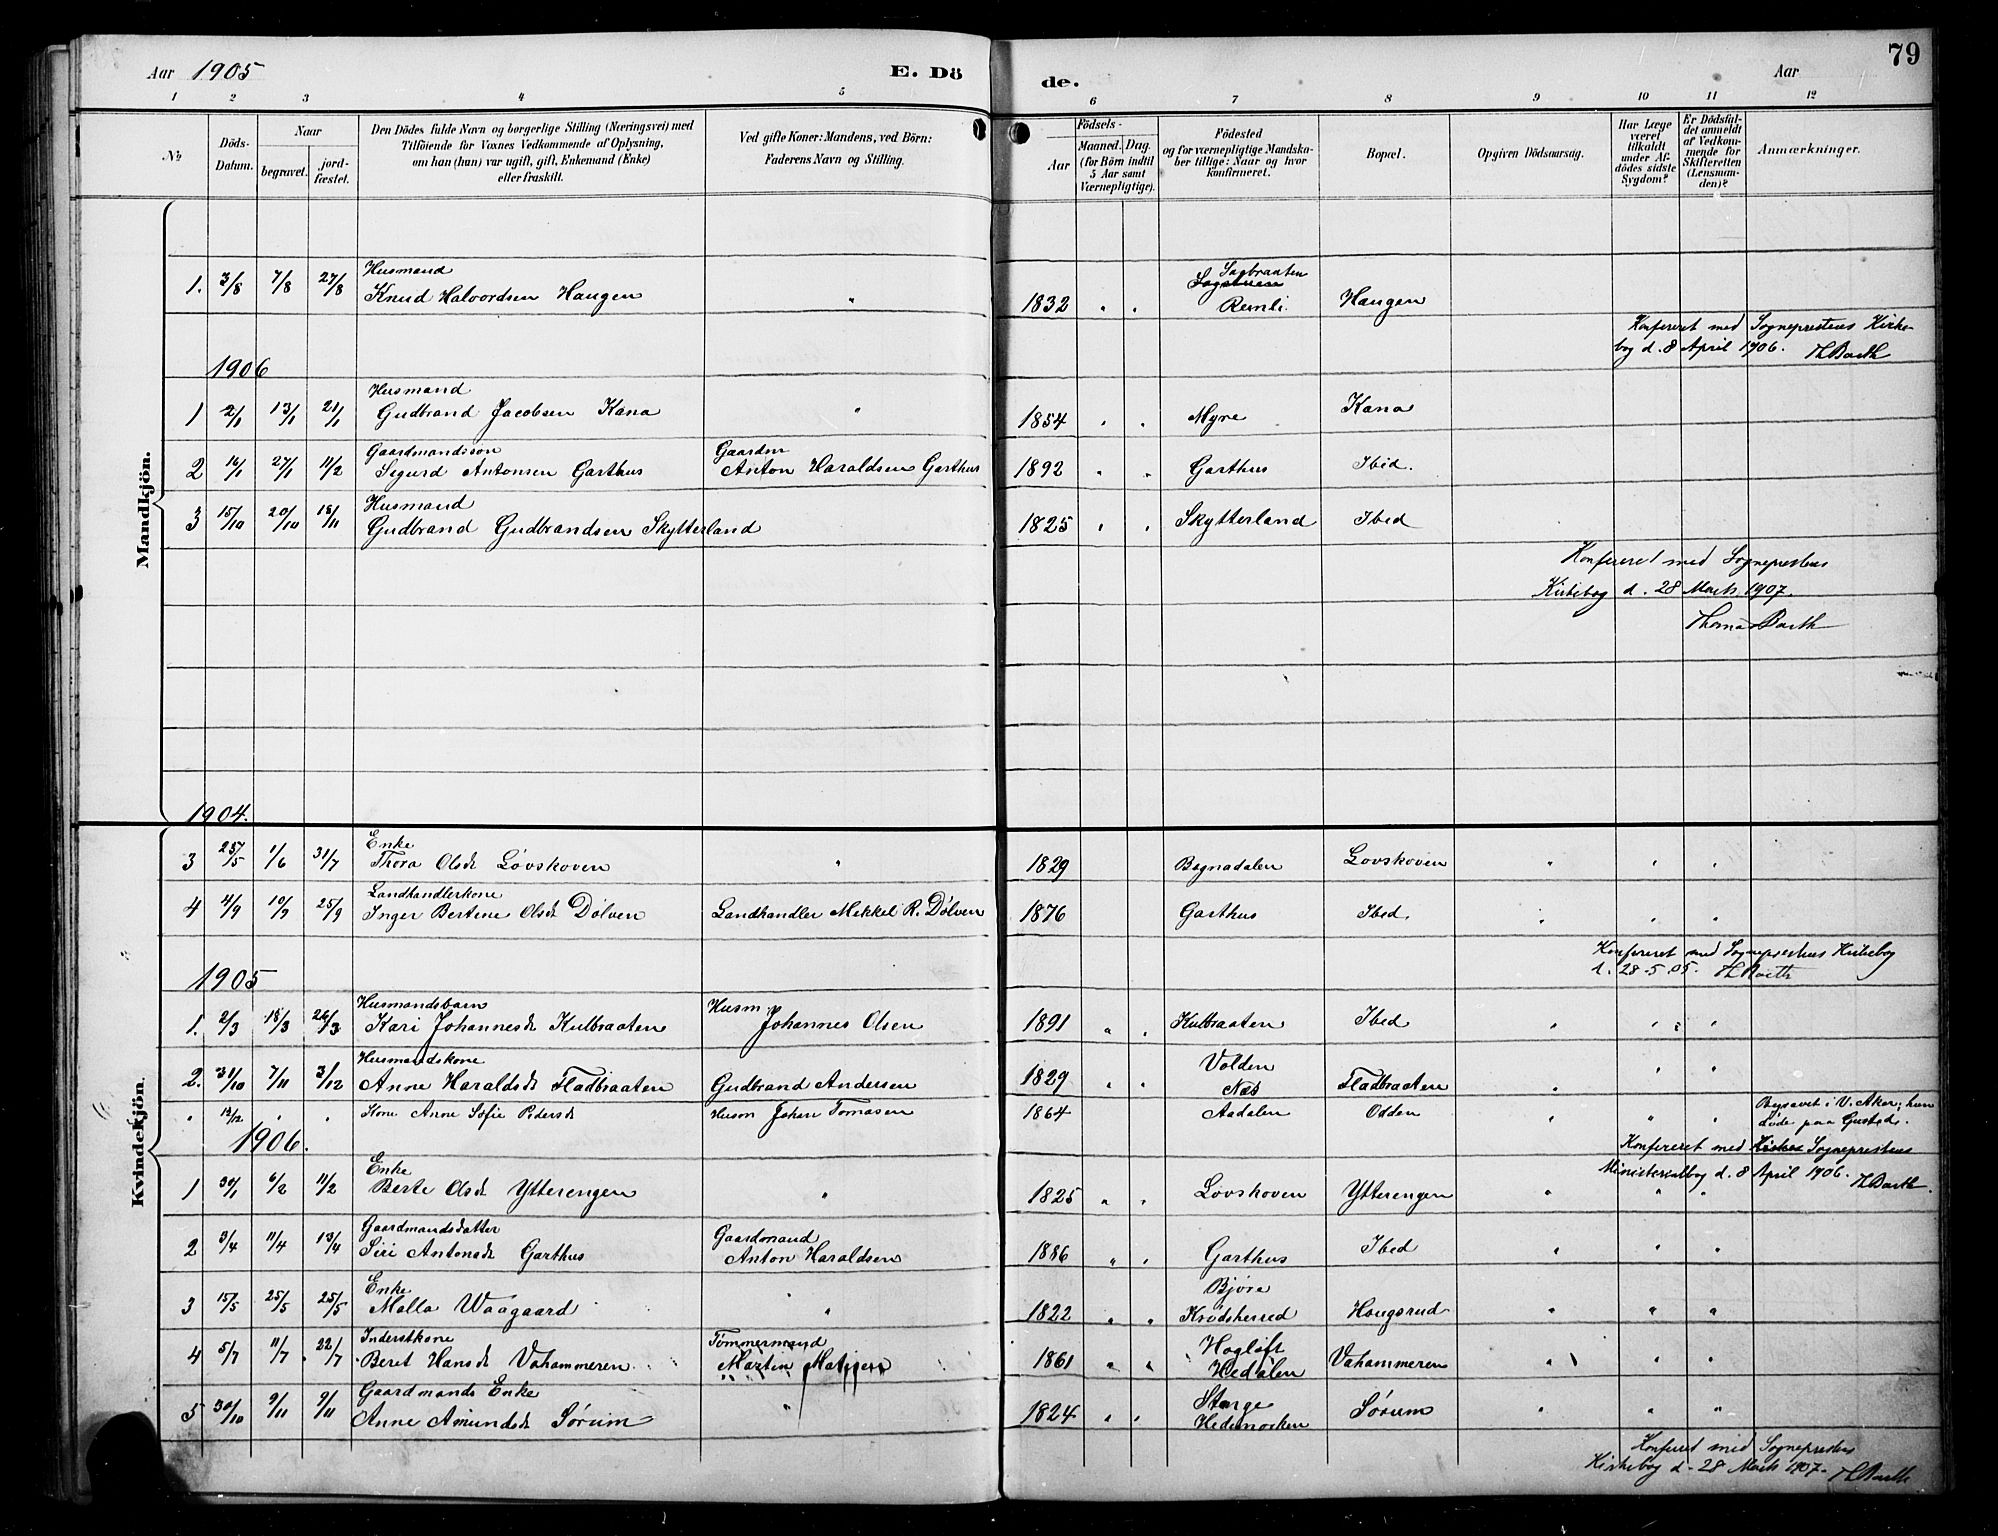 79
Aar 1905 E. Dö de. Aar
1 2 3 4 5 6 7 8 9 10 11 12
No
Döds-Datum.
Naar
begravet.
jord-fæstet.
Den Dödes fulde Navn og borgerlige Stilling (Næringsvei) med
Tilföiende for Voxnes Vedkommende af Oplysning,
om han (hun) var ugift, gift, Enkemand (Enke)
eller fraskilt.
Ved gifte Koner: Mandens, ved Börn:
Faderens Navn og Stilling.
Födsels-
Aar
Maaned. Dag.
(for Börn indtil
5 Aar samt
Værnepligtige).
Födested
og for værnepligtige Mandska-
ber tillige: Naar og hvor
konfirmeret.
Bopæl.
Opgiven Dödsaarsag.
Har Læge
været
tilkaldt
under Af-
dödes sidste
Sygdom?
Er Dödsfal-
det anmeldt
af Vedkom-
mende for
Skifteretten
(Lensman-
den)?
Anmærkninger.
Mandkjön.
Husmand Sagbraaten
1. 3/8 7/8 27/8 Knud Halvordsen Haugen " 1832 " " Remli Haugen
Konfereret med Sogneprestens Kirke-
bog d. 8 April 1906. Th Barth
1906
Husmand
1 2/1 13/1 21/1 Gudbrand Jacobsen Kana " 1854 " " Myre Kana
Gaardmandssøn Gaardm
2 16/1 27/1 11/2 Sigurd Antonsen Garthus Anton Haraldsen Garthus 1892 " " Garthus Ibid.
Husmand
3 15/10 20/10 18/11 Gudbrand Gudbrandsen Skytterland 1825 " " Skytterland Ibid
Konfereret med Sogneprestens
Kirkebog d. 28 Marts 1907.
Thomas Barth
1904.
Kvindekjön.
Enke
3 25/5 1/6 31/7 Thora Olsdt Løvskoven " 1829 Bagnadalen Lovskoven " " "
Landhandlerkone
4 4/9 10/9 25/9 Inger Bertine Olsdt Dölven Landhandler Mikkel R. Dölven 1876 Garthus Ibid. " " "
Konfereret med Sogneprestens Kirkebog
d. 28-5-05. Th Barth
1905
Husmandsbarn Husm.
1. 2/3 18/3 26/3 Kari Johannesdt Kulbraaten Johannes Olsen 1891 " " Kulbraaten Ibid " " "
Husmandskone Volden
2. 31/10 7/11 3/12 Anne Haraldsdt Fladbraaten Gudbrand Andersen 1829 " " Næs Fladbraaten " " "
" 12/12 " " Kone Anne Sofie Pedersdt Husm Johan Tomasen 1864 Aadalen Odden " " " Begravet i V. Aker; hun
døde paa Gustad.
1906.
Konfereret med Sogneprestens
Ministerialbog d. 8 April 1906. Th Barth.
Enke
1 30/1 6/2 11/2 Berte Olsdt Ytterengen " 1825 " " Lovskoven Ytterengen " " "
Gaardmandsdatter Gaardmand
2 3/4 11/4 13/4 Siri Antonsdt Garthus Anton Haraldsen 1886 " " Garthus Ibid " " "
Enke Bjøre
3 15/5 25/5 25/5 Malla Waagaard " 1822 " " Krødsherred Haugsrud " " "
Inderstkone Tømmermand Hogløft
4 5/7 11/7 22/7 Beret Hansdt Vahammeren Martin 1861 " " Hedalen Vahammeren " " "
Gaardmands Enke Stange
5 30/10 9/11 9/11 Anne Amundsdt Sørum " 1824 " " Hedemarken Sørum " " "
Konfereret med Sogneprestens
Kirkebog d. 28 Marts 1907. Th Barth